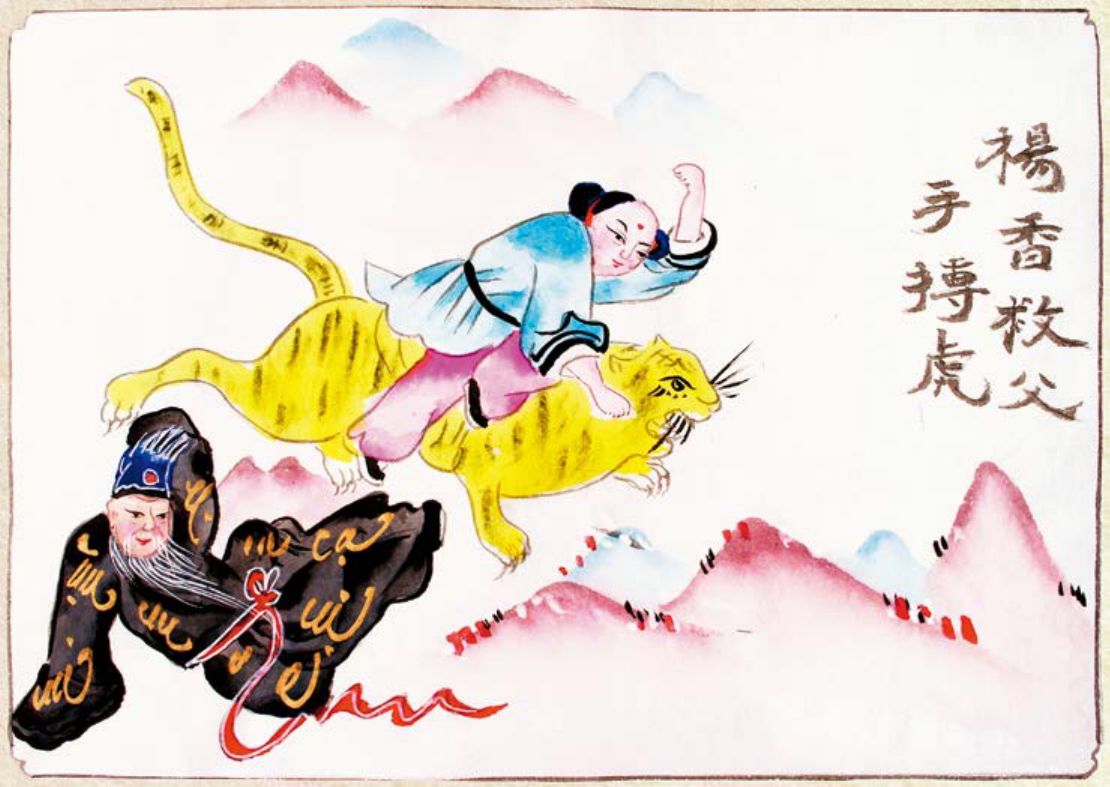 楊香救父
手搏虎